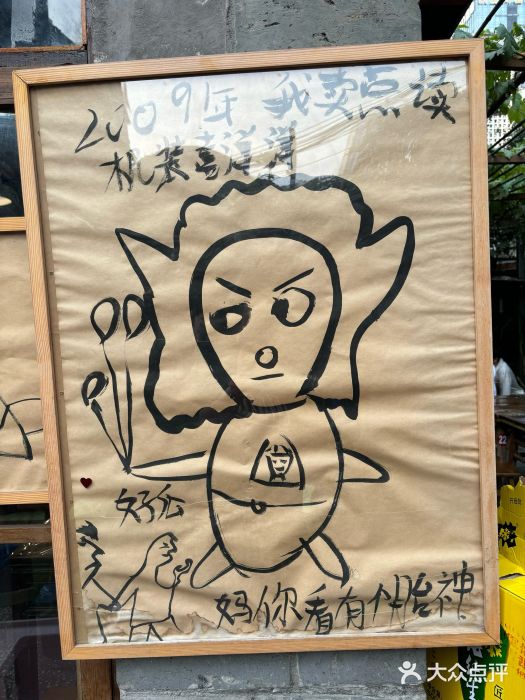 2009年 我卖点读
机装喜洋洋
好
妈你看有个胎神
22
大众点评